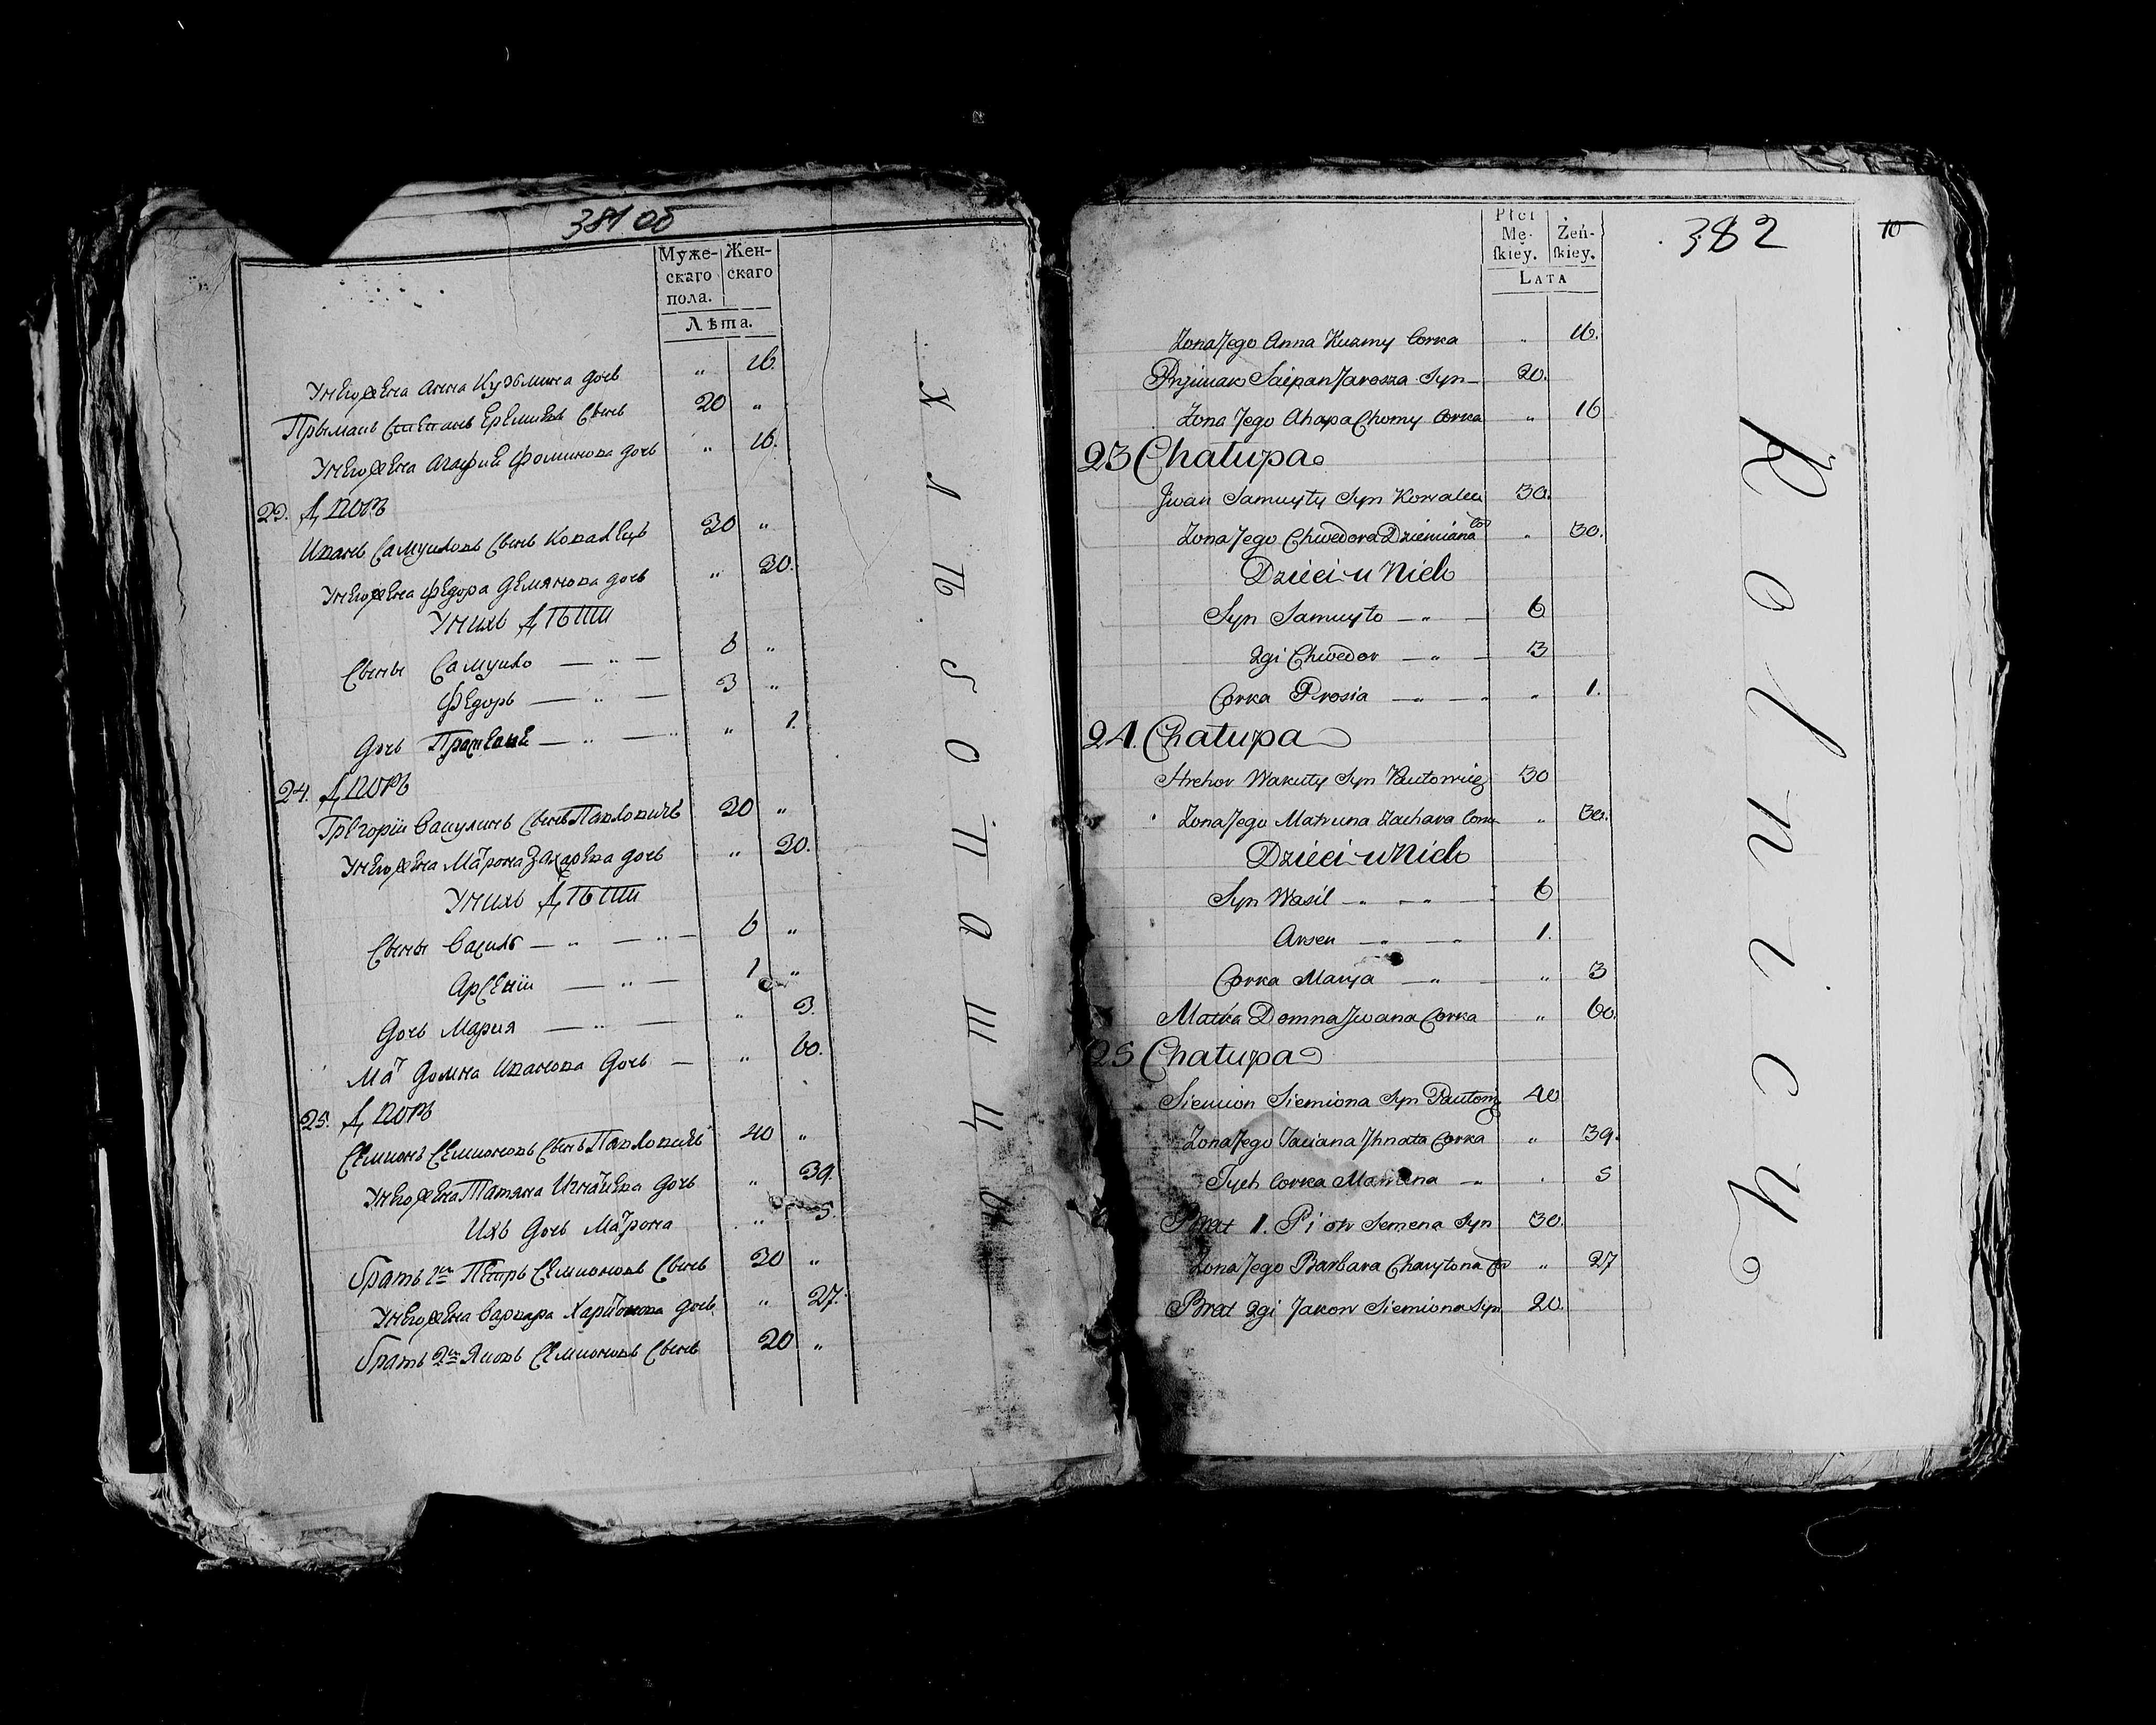 381 об
Муже-
скаго
пола.
Жен-
скаго
Лѣта.
У него жена Анна Кузьмина дочь " 16.
Прымакъ Степанъ Еремиевъ Сынъ 20 "
У него жена Агафия Фоминова дочь " 16.
23. Дворъ
Иванъ Самуиловъ Сынъ Ковалецъ 30 "
У него жена Федора Демянова дочь " 30.
У нихъ Дѣти
Сыны Самуило — " — 6 "
Федоръ — " — 3 "
Дочь — " — " 1.
24. Дворъ
Григорiи Вакулинъ Сынъ Павловичъ 30 "
У него жена Матрона Захарева дочь " 30.
У нихъ Дѣти
Сыны Василь — " — " — 6 "
Арсенiи — " — 1 "
Дочь Мария — " — " 3.
Мат Домна Иванова Дочь — " 60.
25. Дворъ
Семионъ Семионовъ Сынъ Павловичъ 40 "
У него жена Татяна Игнатева дочь " 39.
Ихъ Дочь Матрона " 5.
Братъ 1й Петръ Семионовъ Сынъ 30 "
У него жена Варвара Харитонова дочь " 27.
Братъ 2й Яковъ Семионовъ Сынъ 20 "
Хлѣбопашцы
Płci
Mę-
ſkiey.
Żeń-
ſkiey.
LATA
382
10
Zona Jego Anna Kuzmy Corka " 16.
Przimak Sciepan Jarosza Syn — 20.
Zona Jego Ahapa Chomy Corka " 16
23 Chatupa
Jwan Samuyty Syn Kowalec 30.
Zona Jego Chwedora Dziemiana Cor " 30.
Dzieci u Nich
Syn Samuyto — " — 6
2gi Chwedor — " — 3
Corka Prosia — " — " " 1.
24. Chatupa
Hrehor Wakuty Syn Pautowicz 30
Zona Jego Matruna Zachara Corka " 30.
Dzieci u Nich
Syn Wasil — " — " — 6
Arsen — " — " 1.
Corka Marya — " — " 3
Matka Domna Jwana Corka " 60.
25 Chatupa
Siemion Siemiona Syn Pautowicz 40
Zona Jego Taciana Jhnata Corka " 39.
Tych Corka Matruna — " " 5
Brat 1. Piotr Semena Syn 30.
Zona Jego Barbara Charytona Cor " 27
Brat 2gi Jakow Siemiona Syn 20.
Rolnicy